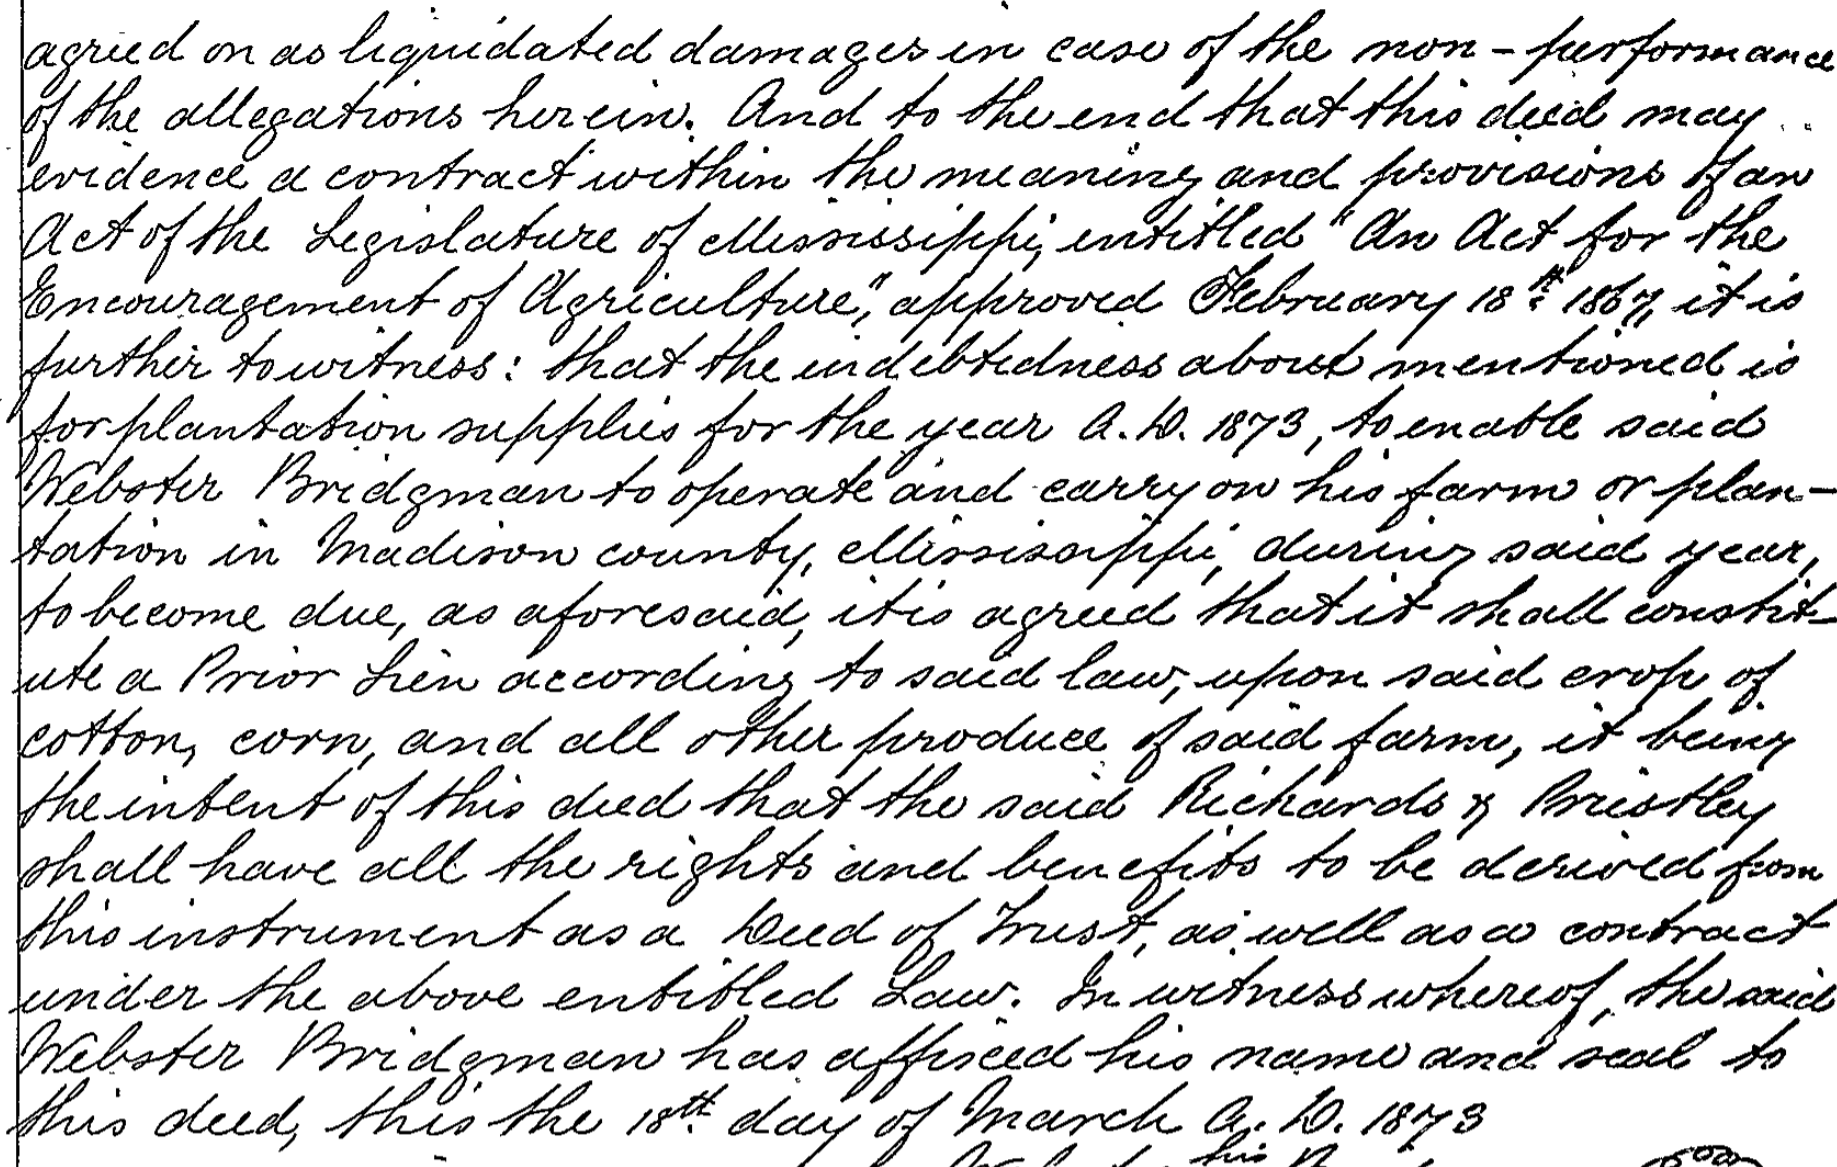 agreed on as liquidated damages in case of the non-performance
of the allegations herein. And to the end that this deed may
evidence a contract within the meaning and provisions of an
Act of the Legislature of Mississippi, entitled "An Act for the
Encouragement of Agriculture," approved February 18th 1867, it is
further to witness: that the indebtedness above mentioned is
for plantation supplies for the year A.D. 1873, to enable said
Webster Bridgman to operate and carry on his farm or plan-
tation in Madison county, Mississippi, during said year,
to become due, as aforesaid, it is agreed that it shall constit-
ute a Prior Lien according to said law, upon said crop of
cotton, corn, and all other produce of said farm, it being
the intent of this deed that the said Richards & Priestley
shall have all the rights and benefits to be derived from
this instrument as a Deed of Trust, as well as a contract
under the above entitled Law. In witness whereof, the said
Webster Bridgman has affixed his name and seal to
this deed, this the 18th day of March A.D. 1873
his